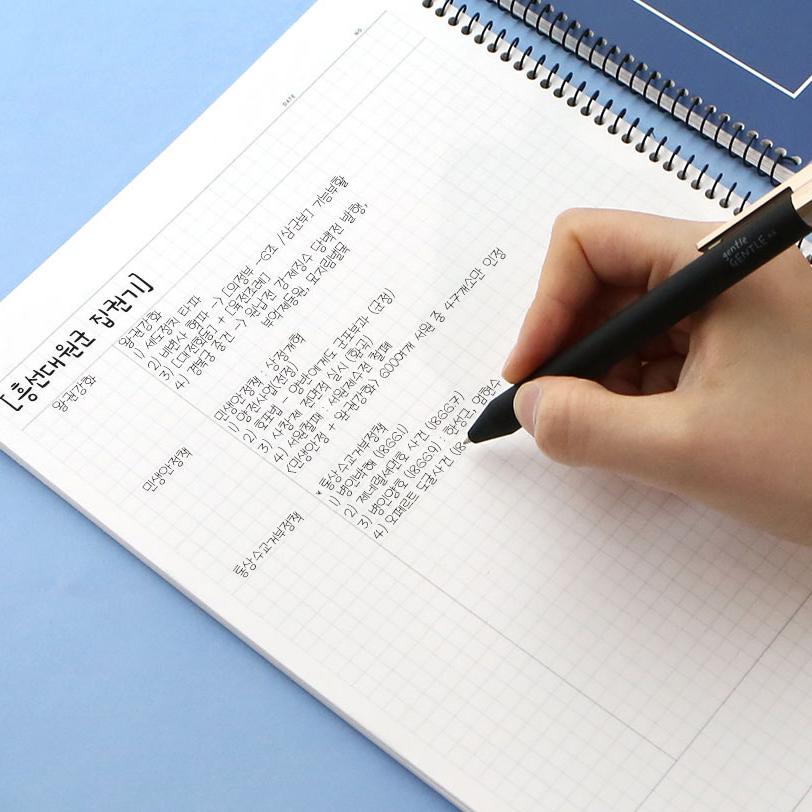 NO
DATE
[흥선대원군 집권기]
왕권강화
왕권강화
1) 세도정치 타파
2) 비변사 혁파 -> [의정부 -6조 / 삼군부] 기능부활
3) [대전회통] + [육전조례]
4) 경복궁 중건 -> 원납전 강제징수 당백전 발행,
부역제동원, 묘지림벌목
민생안정책
민생안정책 : 삼정개혁
1) 양전사업(전정)
2) 호포법 - 양반에게도 군포부과 (군정)
3) 사창제 전면적 실시 (환곡)
4) 서원철폐 : 서원면세전 철폐
(민생안정 + 왕권강화) 600여개 서원 중 47개소만 인정
통상수교거부정책
* 통상수교거부정책
1) 병인박해 (1866.1)
2) 제네럴셔먼호 사건 (1866.7)
3) 병인양요 (1866.9) : 한성근, 양헌수
4) 오페르트 도굴사건 (18
gentle
GENTLE